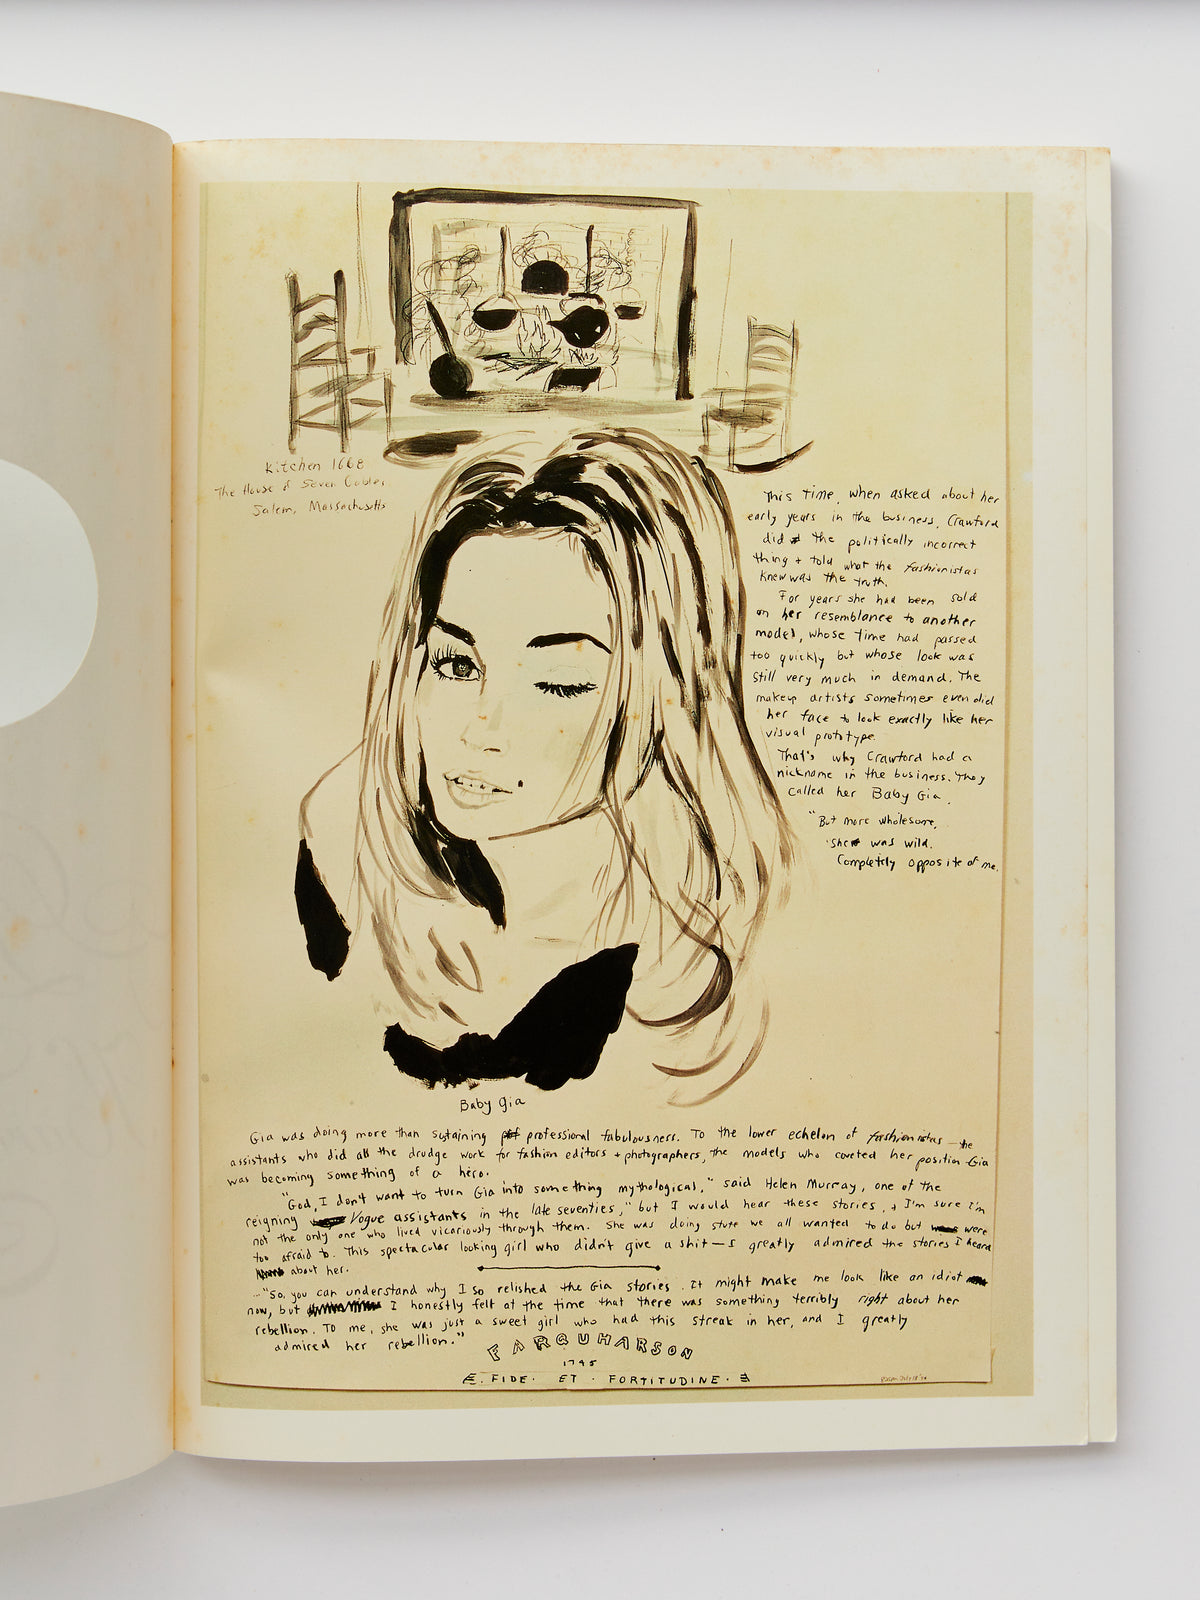 Kitchen 1668
The House of Seven Gables
Salem, Massachusetts
This time, when asked about her
early years in the business, Crawford
did the politically incorrect
thing + told what the fashionistas
knew was the truth.
For years she had been sold
on her resemblance to another
model, whose time had passed
too quickly but whose look was
still very much in demand. The
makeup artists sometimes even did
her face to look exactly like her
visual prototype.
That's why Crawford had a
nickname in the business. They
called her Baby Gia.
"But more wholesome,
she was wild.
Completely opposite of me.
Baby Gia
Gia was doing more than sustaining professional fabulousness. To the lower echelon of fashionistas — the
assistants who did all the drudge work for fashion editors + photographers, the models who coveted her position – Gia
was becoming something of a hero.
"God, I don't want to turn Gia into something mythological," said Helen Murray, one of the
reigning Vogue assistants in the late seventies," but I would hear these stories, + I'm sure I'm
not the only one who lived vicariously through them. She was doing stuff we all wanted to do but were
too afraid to. This spectacular looking girl who didn't give a shit — I greatly admired the stories I heard
about her.
..."So, you can understand why I so relished the Gia stories. It might make me look like an idiot
now, but I honestly felt at the time that there was something terribly right about her
rebellion. To me, she was just a sweet girl who had this streak in her, and I greatly
admired her rebellion."
FARQUHARSON
1745
FIDE · ET · FORTITUDINE ·